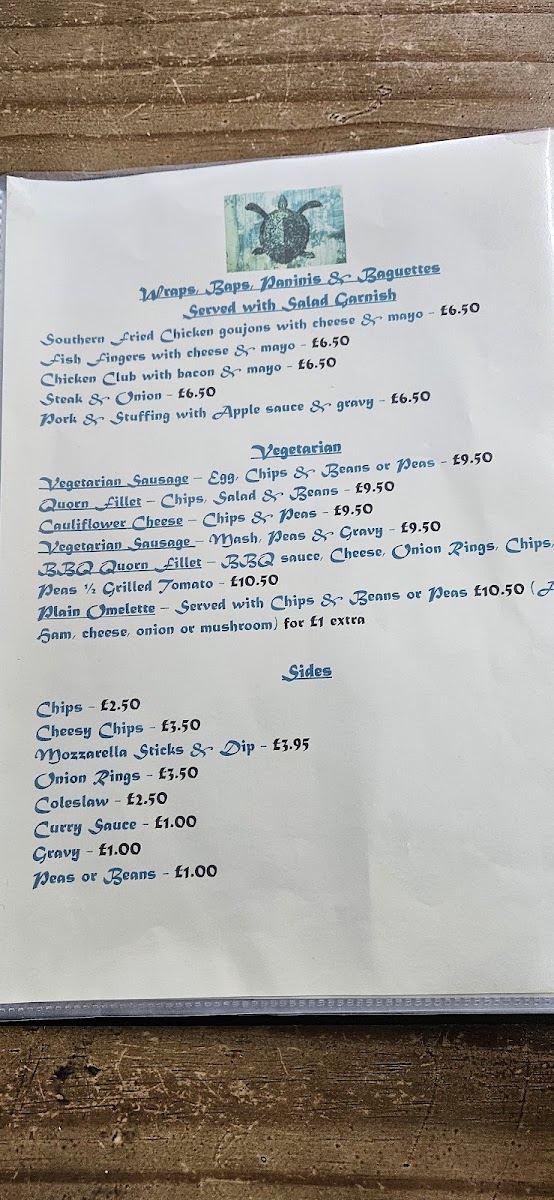 Wraps, Baps, Paninis & Baguettes
Served with Salad Garnish
Southern Fried Chicken goujons with cheese & mayo - £6.50
Fish Fingers with cheese & mayo - £6.50
Chicken Club with bacon & mayo - £6.50
Steak & Onion - £6.50
Pork & Stuffing with Apple sauce & gravy - £6.50
Vegetarian
Vegetarian Sausage – Egg, Chips & Beans or Peas - £9.50
Quorn Fillet – Chips, Salad & Beans - £9.50
Cauliflower Cheese – Chips & Peas - £9.50
Vegetarian Sausage – Mash, Peas & Gravy - £9.50
BBQ Quorn Fillet – BBQ sauce, Cheese, Onion Rings, Chips,
Peas ½ Grilled Tomato - £10.50
Plain Omelette – Served with Chips & Beans or Peas £10.50 (
Ham, cheese, onion or mushroom) for £1 extra
Sides
Chips - £2.50
Cheesy Chips - £3.50
Mozzarella Sticks & Dip - £3.95
Onion Rings - £3.50
Coleslaw - £2.50
Curry Sauce - £1.00
Gravy - £1.00
Peas or Beans - £1.00